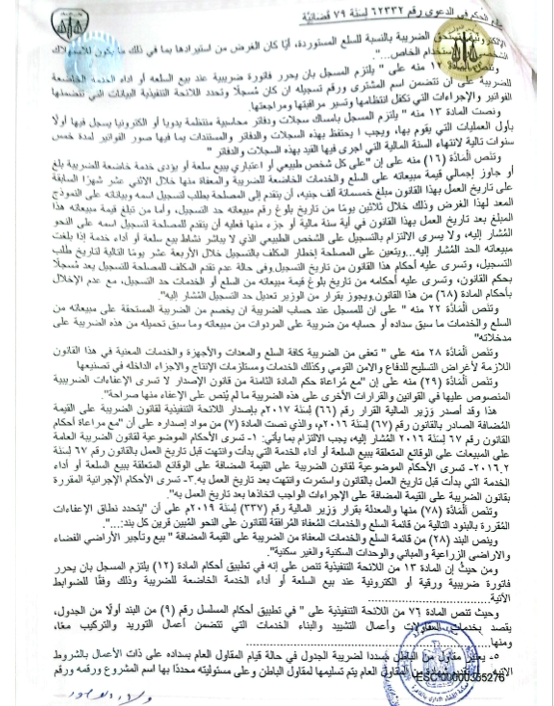 تابع الحكم في الدعوى رقم ٦٢٣٣٢ لسنة ٧٩ قضائية
الضريبة بالنسبة للسلع المستوردة، أيًا كان الغرض من استيرادها بما في ذلك ما يكون للاستهلاك
الاستخدام الخاص..."
وتنص ١٢ منه على " يلتزم المسجل بان يحرر فاتورة ضريبية عند بيع السلعة أو اداء الخدمة الخاضعة
للضريبة على أن تتضمن اسم المشترى ورقم تسجيله ان كان مُسجلاً وتحدد اللائحة التنفيذية البيانات التي تتضمنها
الفواتير والإجراءات التي تكفل انتظامها وتسير مراقبتها ومراجعتها.
ونصت المادة ١٣ منه " يلتزم المسجل بامساك سجلات ودفاتر محاسبية منتظمة يدويا أو الكترونيا يسجل فيها أولا
بأول العمليات التي يقوم بها، ويجب ا يحتفظ بهذه السجلات والدفاتر والمستندات بما فيها صور الفواتير لمدة خمس
سنوات تالية لانتهاء السنة المالية التي اجرى فيها القيد بهذه السجلات والدفاتر "
وتنص المَادّة (١٦) منه على إن "على كل شخص طبيعي أو اعتباري يبيع سلعة أو يؤدى خدمة خاضعة للضريبة بلغ
أو جاوز إجمالي قيمة مبيعاته من السلع والخدمات الخاضعة للضريبة والمعفاة منها خلال الاثني عشر شهرًا السابقة
على تاريخ العمل بهذا القانون مبلغ خمسمائة ألف جنيه، أن يتقدم إلى المصلحة بطلب لتسجيل اسمه وبياناته على النموذج
المعد لهذا الغرض وذلك خلال ثلاثين يومًا من تاريخ بلوغ رقم مبيعاته حد التسجيل، وأما من تبلغ قيمة مبيعاته هذا
المبلغ بعد تاريخ العمل بهذا القانون في أية سنة مالية أو جزء منها فعليه أن يتقدم للمصلحة لتسجيل اسمه على النحو
المُشار إليه، ولا يسرى الالتزام بالتسجيل على الشخص الطبيعي الذي لا يباشر نشاط بيع سلعة أو أداء خدمة إذا بلغت
مبيعاته الحد المُشار إليه...ويتعين على المصلحة إخطار المكلف بالتسجيل خلال الأربعة عشر يومًا التالية لتاريخ طلب
التسجيل، وتسرى عليه أحكام هذا القانون من تاريخ التسجيل.وفى حالة عدم تقدم المكلف للمصلحة للتسجيل يعد مُسجلاً
بحكم القانون، وتسرى عليه أحكامه من تاريخ بلوغ قيمة مبيعاته من السلع أو الخدمات حد التسجيل، مع عدم الإخلال
بأحكام المادة (٦٨) من هذا القانون.ويجوز بقرار من الوزير تعديل حد التسجيل المُشار إليه".
وتنص المَادّة ٢٢ منه " على ان للمسجل عند حساب الضريبة ان يخصم من الضريبة المستحقة على مبيعاته من
السلع والخدمات ما سبق سداده أو حسابه من ضريبة على المردودات من مبيعاته وما سبق تحميله من هذه الضريبة على
مدخلاته"
وتنص المَادّة ٢٨ منه على " تعفى من الضريبة كافة السلع والمعدات والأجهزة والخدمات المعنية في هذا القانون
اللازمة لأغراض التسليح للدفاع والامن القومي وكذلك الخدمات ومستلزمات الإنتاج والاجزاء الداخله في تصنيعها
وتنص المَادّة (٢٩) منه على إن "مع مُراعاة حكم المادة الثامنة من قانون الإصدار لا تسرى الإعفاءات الضريبية
المنصوص عليها في القوانين والقرارات الأخرى على هذه الضريبة ما لم يُنص على الإعفاء منها صراحة".
هذا وقد أصدر وزير المالية القرار رقم (٦٦) لسنة ٢٠١٧م بإصدار اللائحة التنفيذية لقانون الضريبة على القيمة
المُضافة الصادر بالقانون رقم (٦٧) لسنة ٢٠١٦م، والذي نصت المادة (٧) من مواد إصداره على أن "مع مراعاة أحكام
القانون رقم ٦٧ لسنة ٢٠١٦ المُشار إليه، يجب الالتزام بما يأتي: ١- تسرى الأحكام الموضوعية لقانون الضريبة العامة
على المبيعات على الوقائع المتعلقة ببيع السلعة أو أداء الخدمة التي بدأت وانتهت قبل تاريخ العمل بالقانون رقم ٦٧ لسنة
٢٠١٦.٢- تسرى الأحكام الموضوعية لقانون الضريبة على القيمة المضافة على الوقائع المتعلقة ببيع السلعة أو أداء
الخدمة التي بدأت قبل تاريخ العمل بالقانون واستمرت وانتهت بعد تاريخ العمل به.٣- تسرى الأحكام الإجرائية المقررة
بقانون الضريبة على القيمة المضافة على الإجراءات الواجب اتخاذها بعد تاريخ العمل به".
وتنص المَادّة (٧٨) منها والمعدلة بقرار وزير المالية رقم (٣٣٧) لسنة ٢٠١٩م على أن "يتحدد نطاق الإعفاءات
المُقررة بالبنود التالية من قائمة السلع والخدمات المُعفاة المُرافقة للقانون على النحو المُبين قرين كل بند:...".
وينص البند (٢٨) من قائمة السلع والخدمات المعفاة من الضريبة على القيمة المضافة " بيع وتأجير الأراضي الفضاء
والاراضى الزراعية والمباني والوحدات السكنية والغير سكنية".
ومن حيث إن المادة ١٣ من اللائحة التنفيذية تنص على إنه في تطبيق أحكام المادة (١٢) يلتزم المسجل بان يحرر
فاتورة ضريبية ورقية أو الكترونية عند بيع السلعة أو أداء الخدمة الخاضعة للضريبة وذلك وفقًا للضوابط
الآتية.................
وحيث تنص المادة ٧٦ من اللائحة التنفيذية على " في تطبيق أحكام المسلسل رقم (٩) من البند أولًا من الجدول،
يقصد بخدمات المقاولات وأعمال التشييد والبناء الخدمات التي تتضمن أعمال التوريد والتركيب معًا،
ومنها.................
٥- يعتبر مقاول من الباطن مسددا لضريبة الجدول في حالة قيام المقاول العام بسداده على ذات الأعمال بالشروط
المقاول العام يتم تسليمها لمقاول الباطن وعلى مسئوليته محددًا بها اسم المشروع ورقمه ورقم
ESC 00000365276